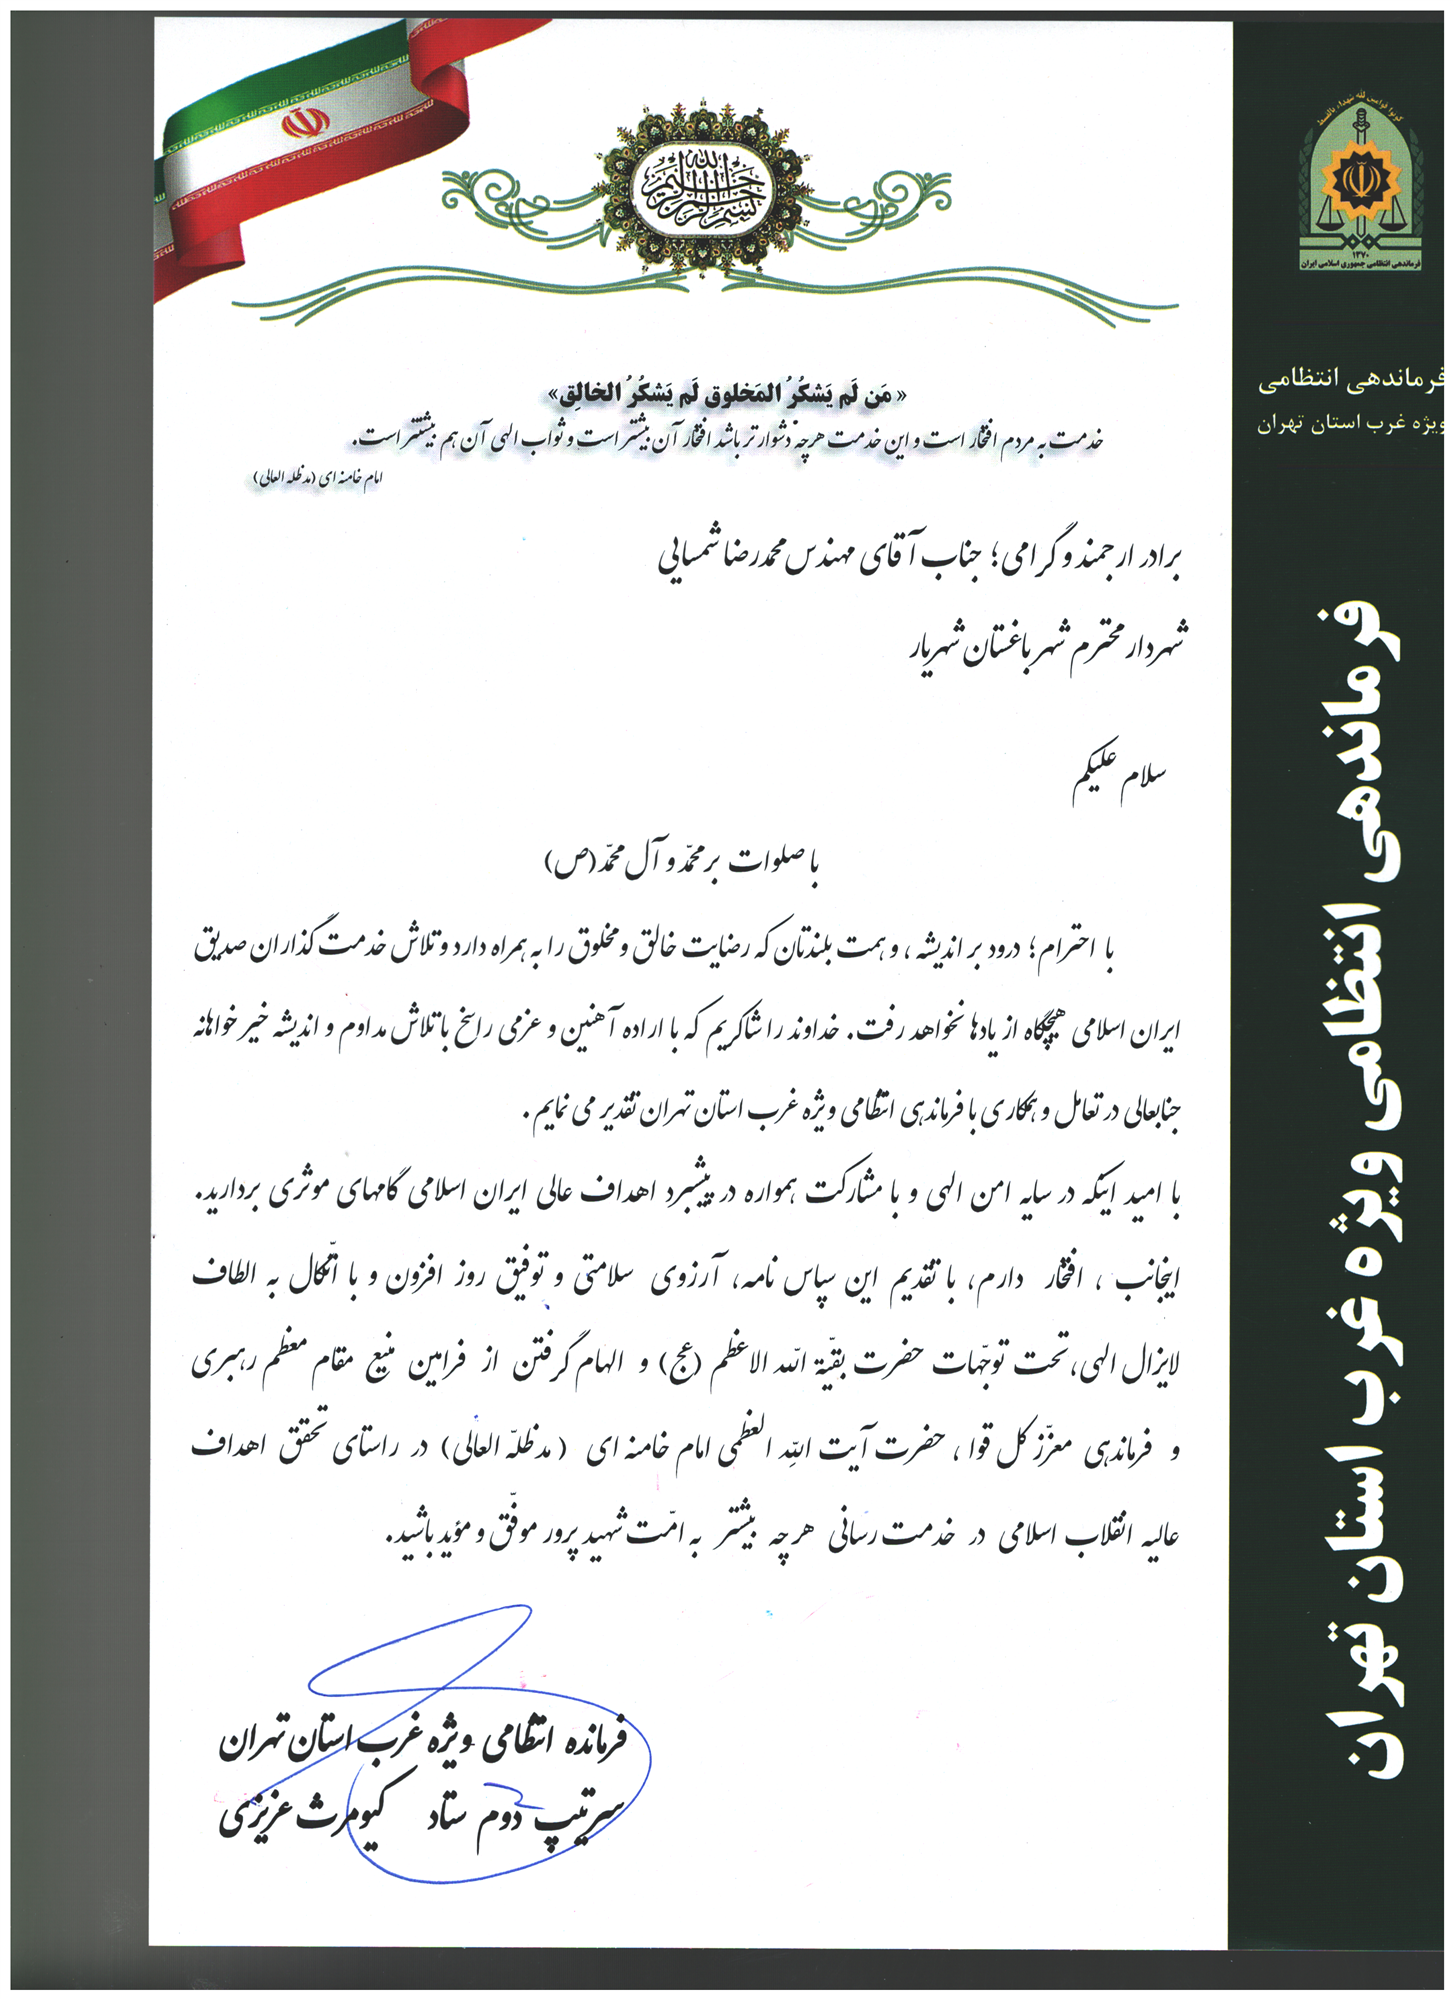 بسم الله الرحمن الرحیم
«مَن لَم یَشکُرُ المَخلوق لَم یَشکُرُ الخالِق»
خدمت به مردم افتخار است و این خدمت هرچه دشوار تر باشد افتخار آن بیشتر است و ثواب الهی آن هم بیشتر است.
امام خامنه ای (مدظله العالی)
برادر ارجمند و گرامی؛ جناب آقای مهندس محمدرضا شمسایی
شهردار محترم شهر باغستان شهریار
سلام علیکم
با صلوات بر محمّد و آل محمّد (ص)
با احترام؛ درود بر اندیشه، و همت بلندتان که رضایت خالق و مخلوق را به همراه دارد و تلاش خدمت گذاران صدیق
ایران اسلامی هیچگاه از یادها نخواهد رفت. خداوند را شاکریم که با اراده آهنین و عزمی راسخ با تلاش مداوم و اندیشه خیر خواهانه
جنابعالی در تعامل و همکاری با فرماندهی انتظامی ویژه غرب استان تهران تقدیر می نمایم.
با امید اینکه در سایه امن الهی و با مشارکت همواره در پیشبرد اهداف عالی ایران اسلامی گامهای موثری بردارید.
اینجانب، افتخار دارم، با تقدیم این سپاس نامه، آرزوی سلامتی و توفیق روز افزون و با اتّکال به الطاف
لایزال الهی، تحت توجّهات حضرت بقیّة الله الاعظم (عج) و الهام گرفتن از فرامین منیع مقام معظم رهبری
و فرماندهی معزّز کل قوا، حضرت آیت الله العظمی امام خامنه ای (مدظلّه العالی) در راستای تحقق اهداف
عالیه انقلاب اسلامی در خدمت رسانی هر چه بیشتر به امّت شهید پرور موفّق و مؤید باشید.
فرمانده انتظامی ویژه غرب استان تهران
سرتیپ دوم ستاد کیومرث عزیزی
۱۳۷۰
فرماندهی انتظامی جمهوری اسلامی ایران
فرماندهی انتظامی
ویژه غرب استان تهران
فرماندهی انتظامی ویژه غرب استان تهران